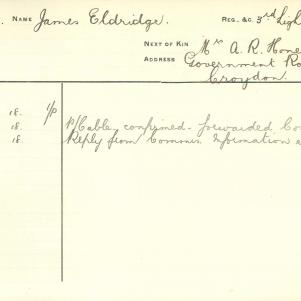 NAME James Eldridge. REG. &C. 3rd Ligh
NEXT OF KIN Mrs A. R. Hone
ADDRESS Government Ro
Croydon.
18. I/P
18. P/Cable, confirmed - forwarded Co
18. Reply from Commrs. Information a